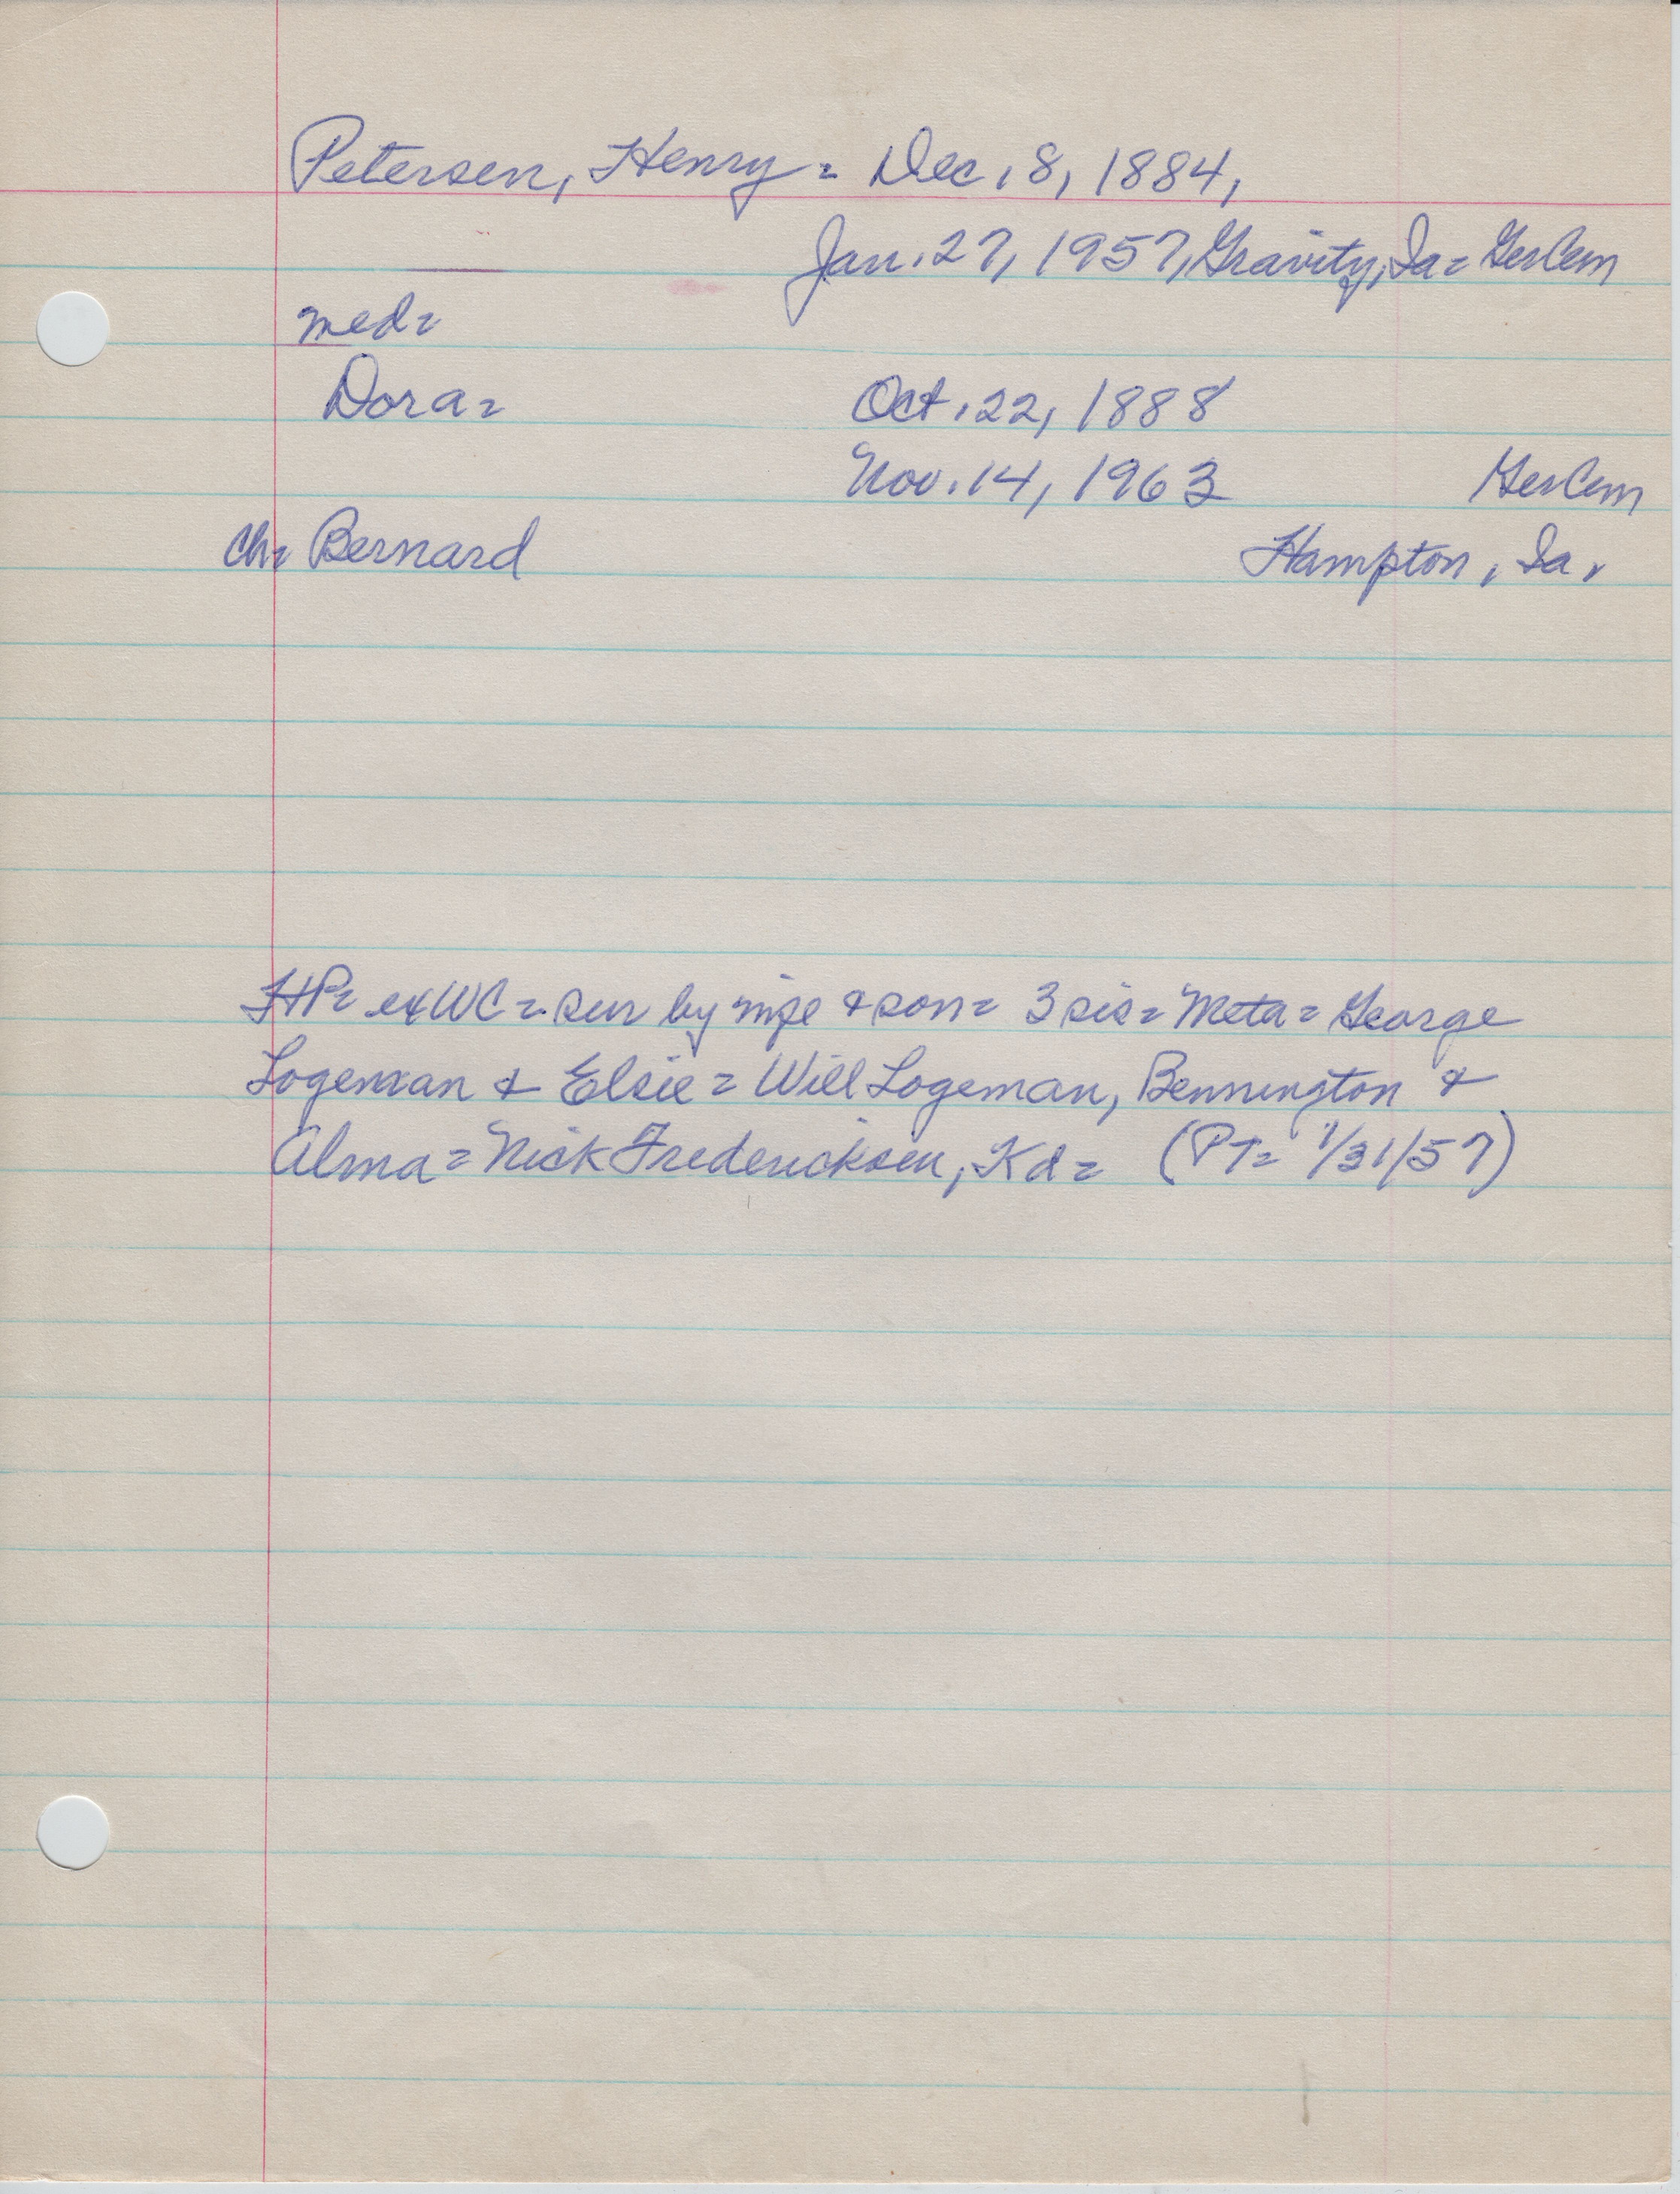 Petersen, Henry = Dec. 8, 1884,
Jan. 27, 1957, Gravity, Ia = GerCem
med =
Dora = Oct. 22, 1888
Nov. 14, 1963 GerCem
Ch = Bernard Hampton, Ia.
HP = exWC = sur by wife & son = 3 sis = Meta = George
Logeman & Elsie = Will Logeman, Bennington &
Alma = Nick Fredericksen, Kd = (PT = 1/31/57)